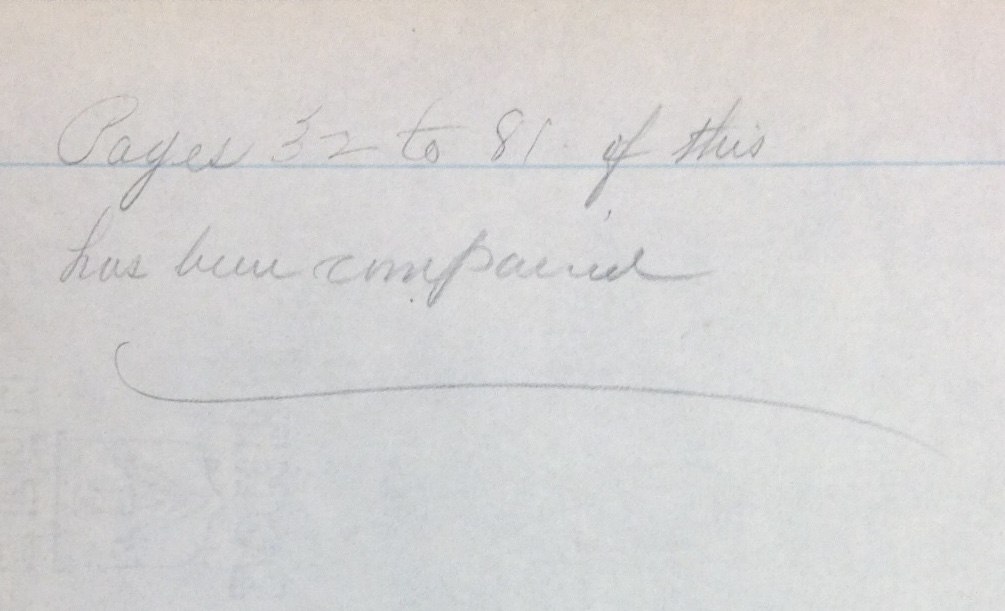 Pages 32 to 81. of this
has been compared